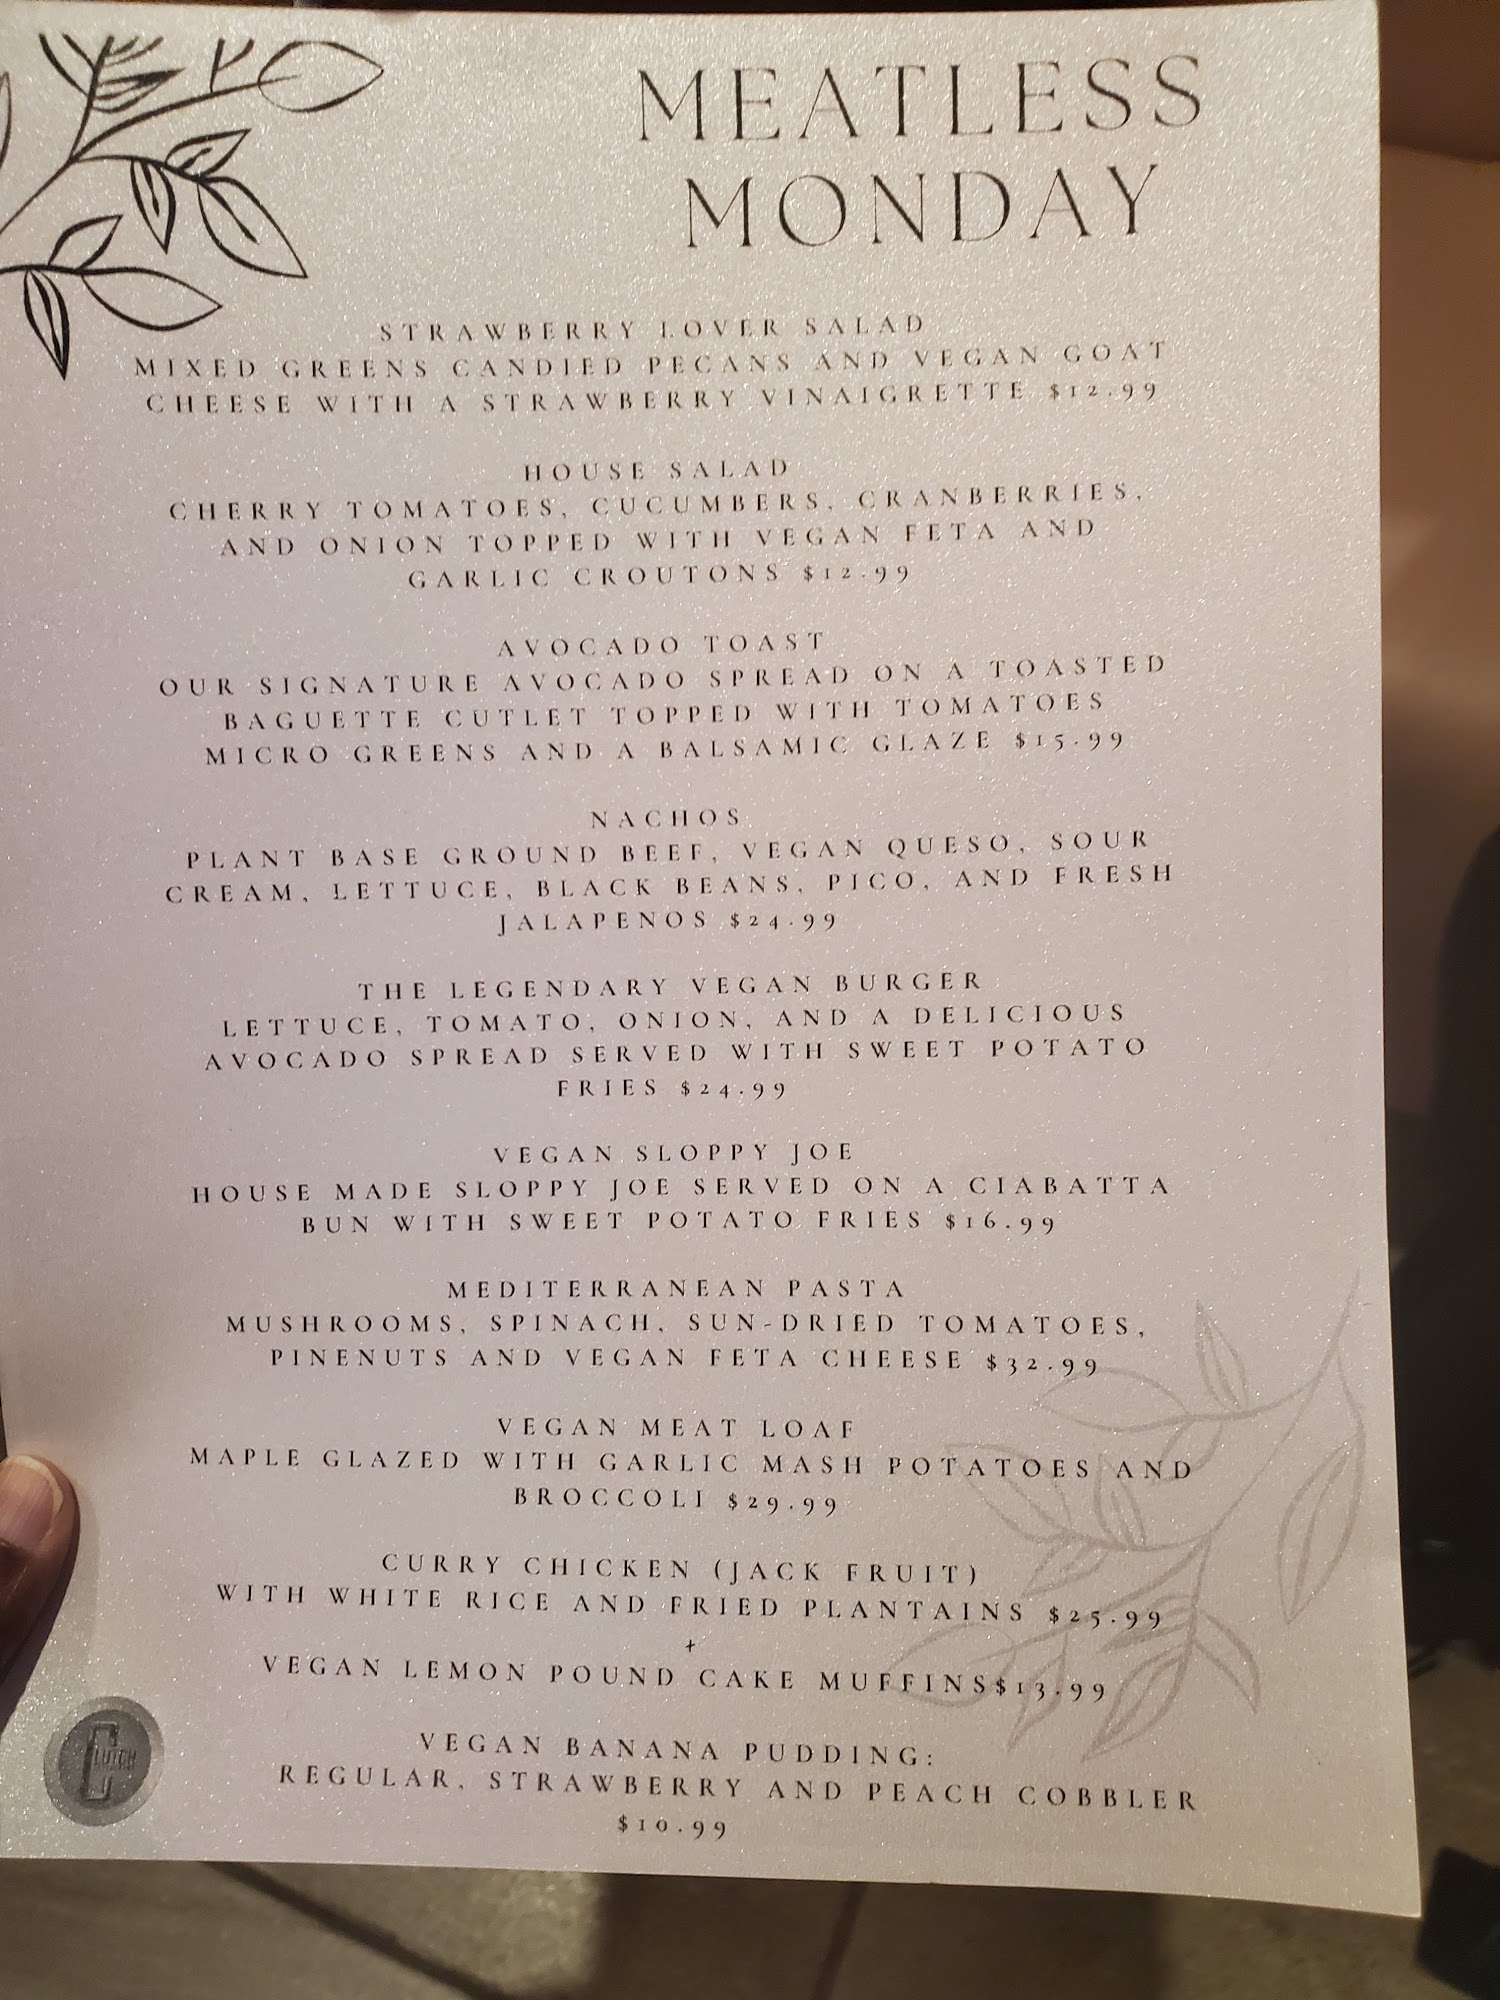 MEATLESS
MONDAY
STRAWBERRY LOVER SALAD
MIXED GREENS CANDIED PECANS AND VEGAN GOAT
CHEESE WITH A STRAWBERRY VINAIGRETTE $12.99
HOUSE SALAD
CHERRY TOMATOES, CUCUMBERS, CRANBERRIES,
AND ONION TOPPED WITH VEGAN FETA AND
GARLIC CROUTONS $12.99
AVOCADO TOAST
OUR SIGNATURE AVOCADO SPREAD ON A TOASTED
BAGUETTE CUTLET TOPPED WITH TOMATOES
MICRO GREENS AND A BALSAMIC GLAZE $15.99
NACHOS
PLANT BASE GROUND BEEF, VEGAN QUESO, SOUR
CREAM, LETTUCE, BLACK BEANS, PICO, AND FRESH
JALAPENOS $24.99
THE LEGENDARY VEGAN BURGER
LETTUCE, TOMATO, ONION, AND A DELICIOUS
AVOCADO SPREAD SERVED WITH SWEET POTATO
FRIES $24.99
VEGAN SLOPPY JOE
HOUSE MADE SLOPPY JOE SERVED ON A CIABATTA
BUN WITH SWEET POTATO FRIES $16.99
MEDITERRANEAN PASTA
MUSHROOMS, SPINACH, SUN-DRIED TOMATOES,
PINENUTS AND VEGAN FETA CHEESE $32.99
VEGAN MEAT LOAF
MAPLE GLAZED WITH GARLIC MASH POTATOES AND
BROCCOLI $29.99
CURRY CHICKEN (JACK FRUIT)
WITH WHITE RICE AND FRIED PLANTAINS $25.99
+
VEGAN LEMON POUND CAKE MUFFINS$13.99
VEGAN BANANA PUDDING:
REGULAR, STRAWBERRY AND PEACH COBBLER
$10.99
CLUTCH